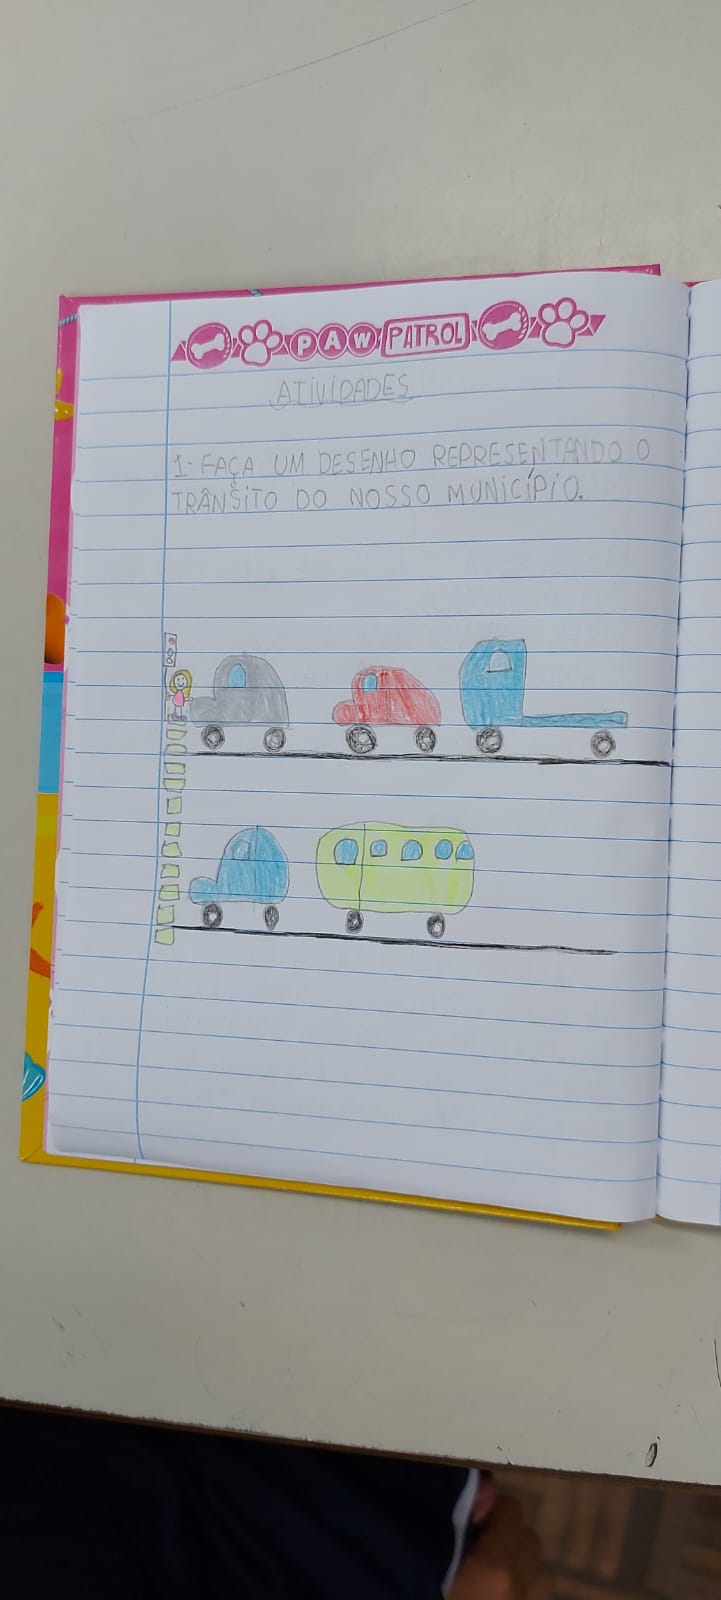 PAW PATROL
ATIVIDADES
1- FAÇA UM DESENHO REPRESENTANDO O
TRÂNSITO DO NOSSO MUNICÍPIO.